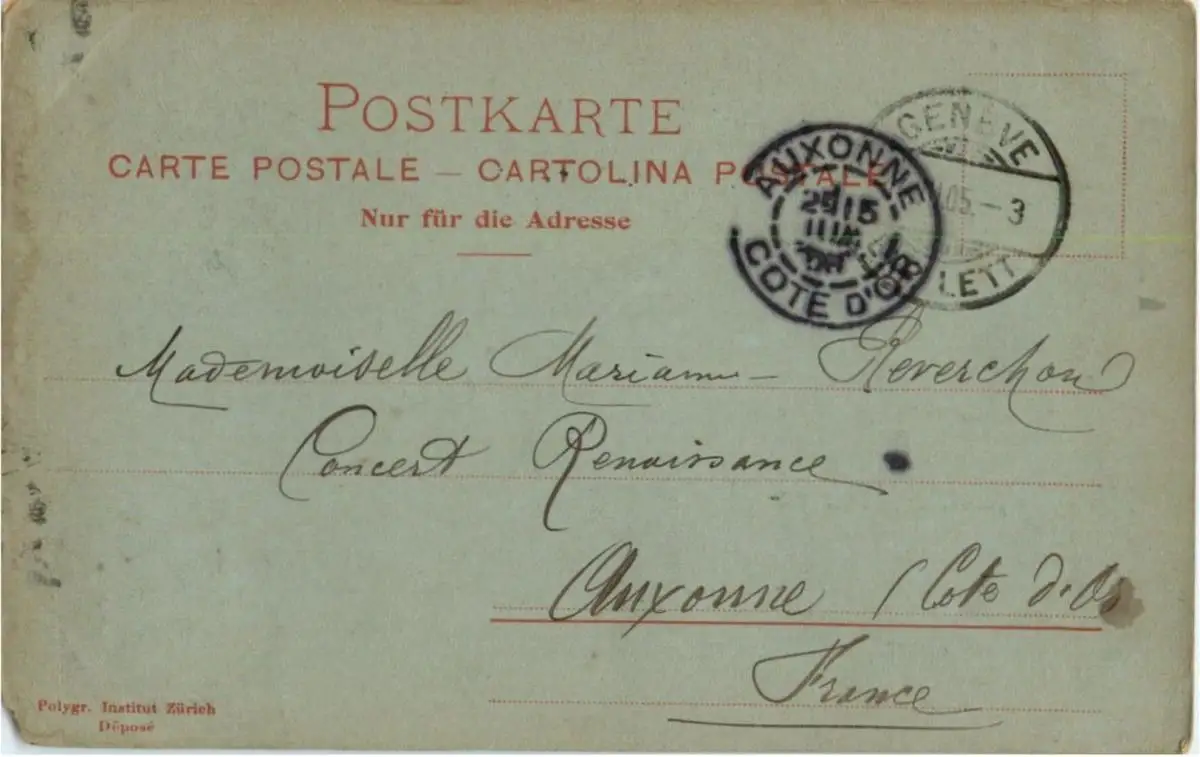 POSTKARTE
CARTE POSTALE – CARTOLINA POSTALE
Nur für die Adresse
GENÈVE
05. – 3
LETT
AUXONNE
25 15
COTE D'OR
Mademoiselle Marianne Reverchon
Concert Renaissance
Auxonne (Cote d'Or
France
Polygr. Institut Zürich
Déposé